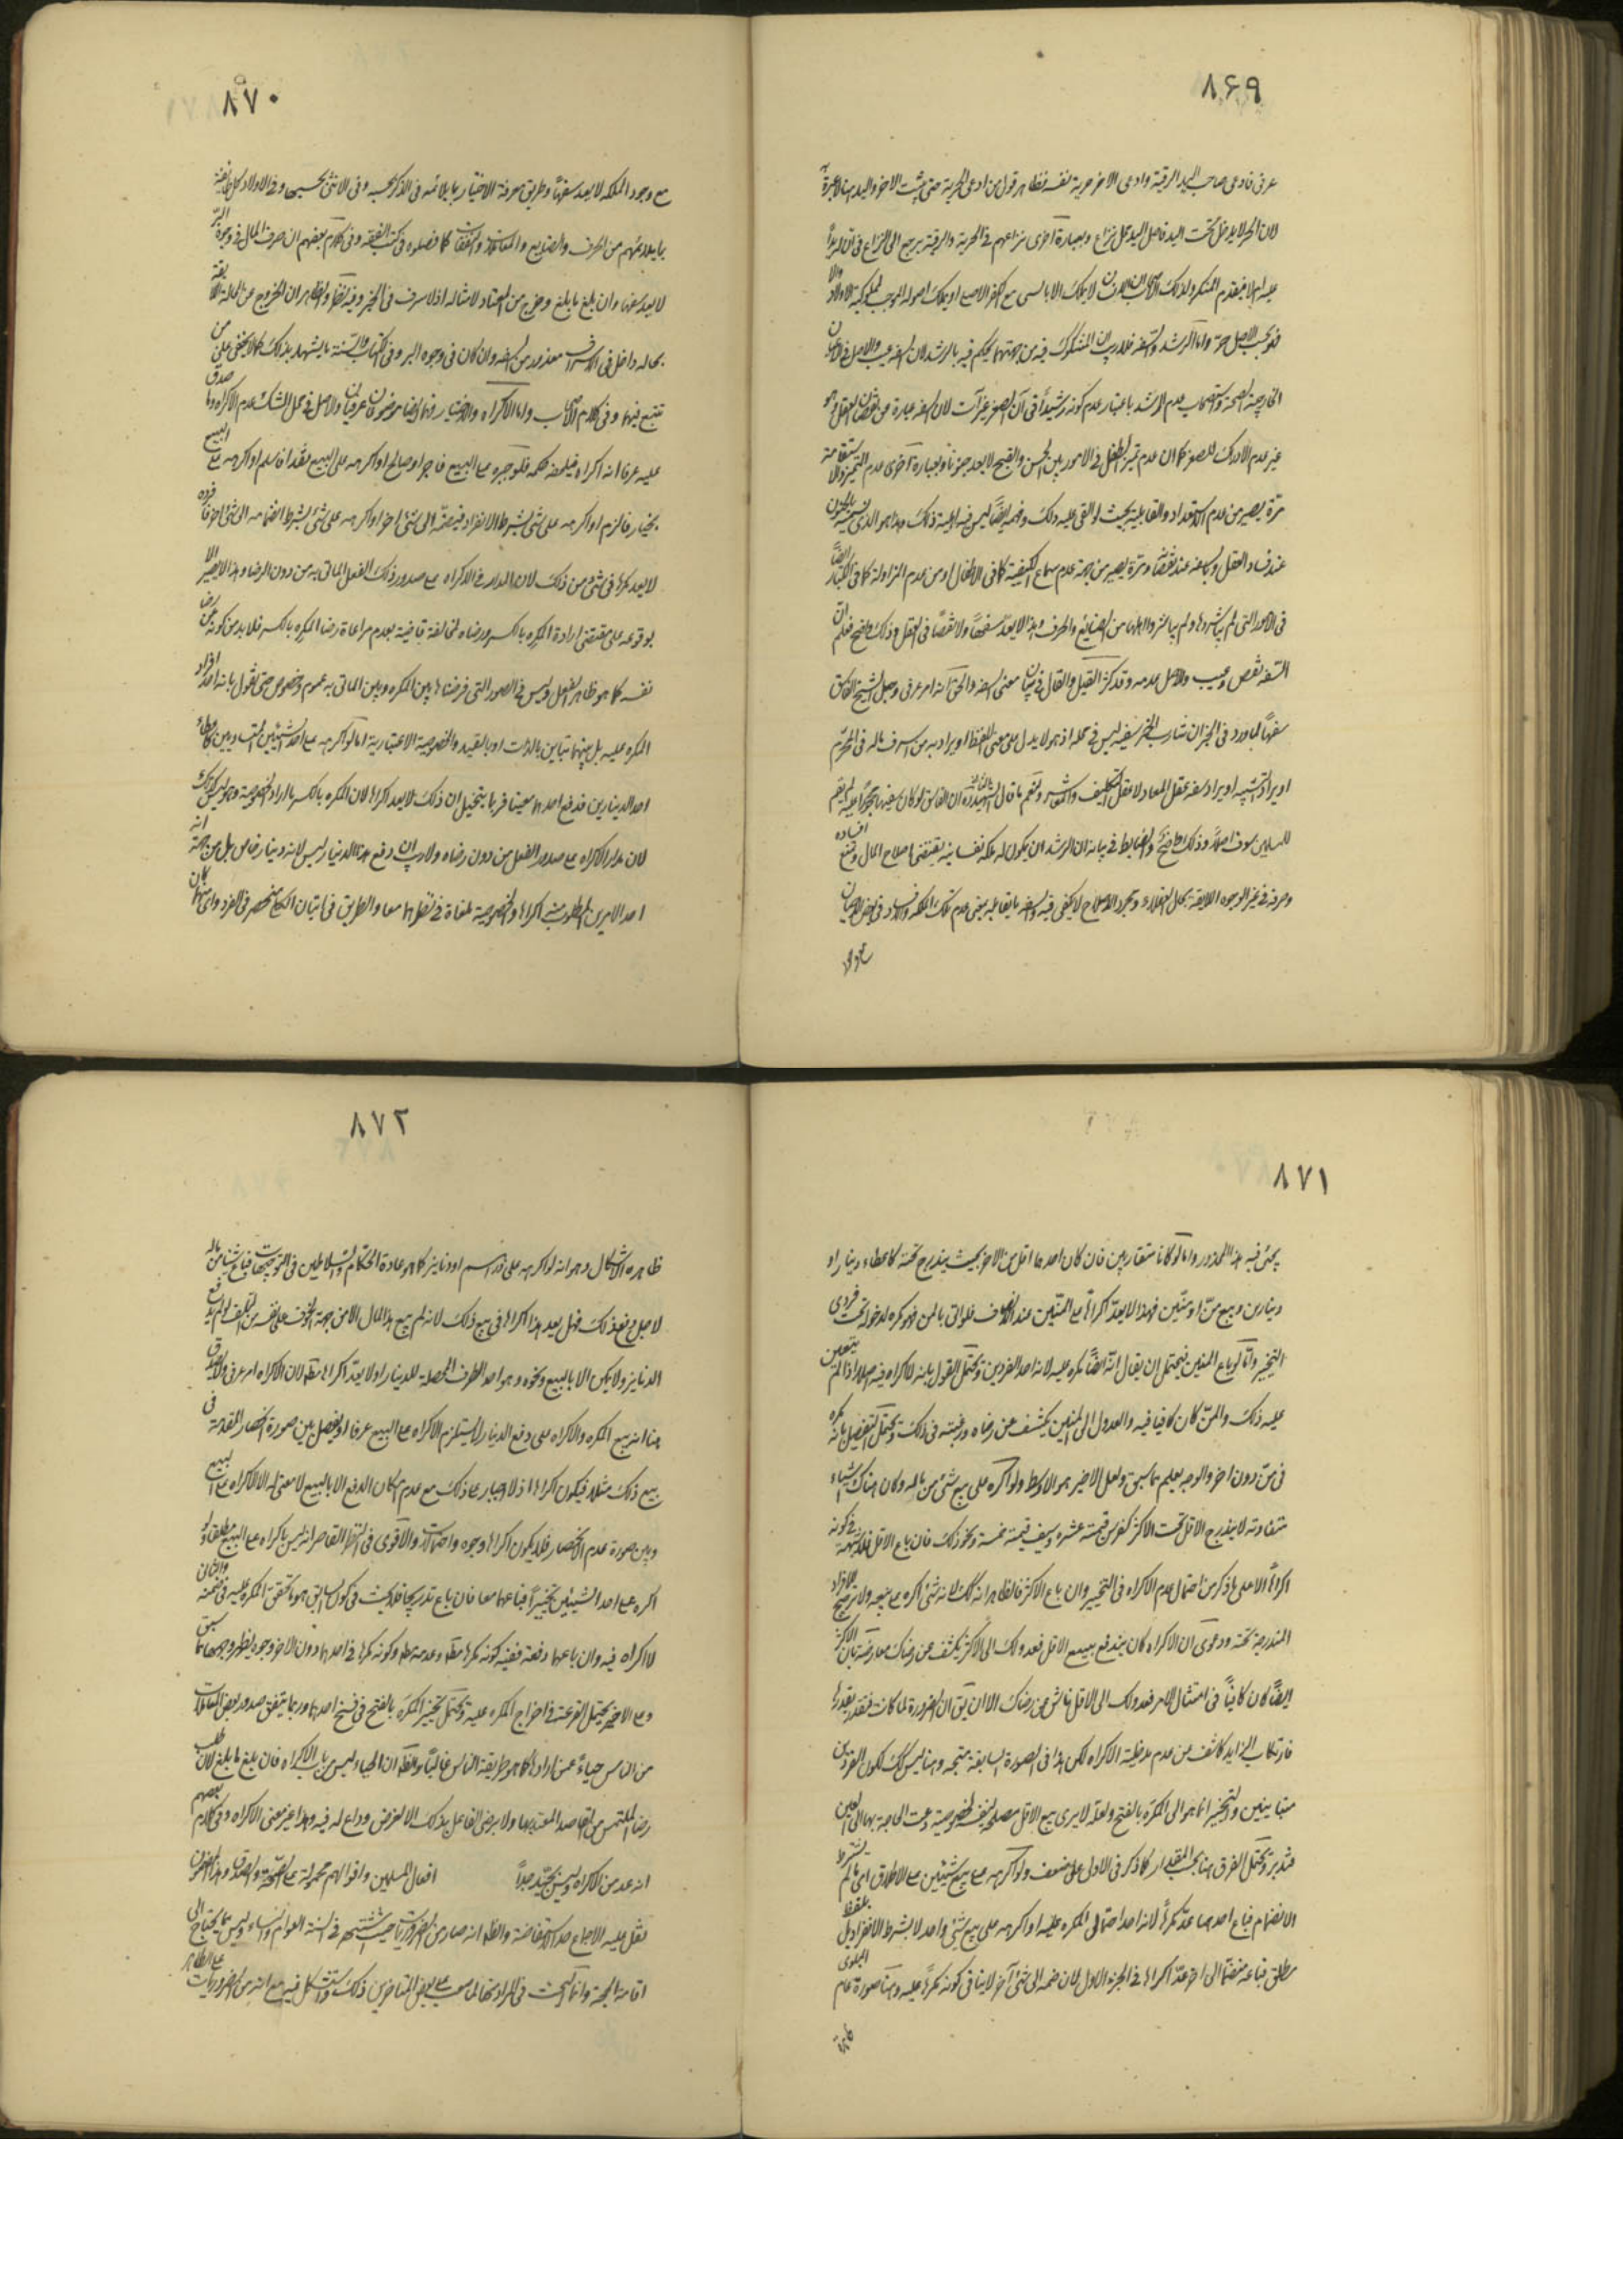 ٨۶٩
عرفى فادعى صاحب اليد الرقية وادعى الاخر حرية نفسه فظاهر قول من ادعى الحرية حتى يثبت الاخر واليد هنا لا عبرة
لان الحر لا يدخل تحت اليد فاصل اليد محل نزاع وبعبارة اخرى نزاعهم فى الحرية والرقية يرجع الى النزاع فى ان
عليه ام لا فيقدم المنكر ولذلك
واما الرشد والسفه فلا ريب ان المشكوك فيه من جهتهما يحكم فيه بالرشد لان السفه عيب والاصل فى
الصحة واستصحاب عدم الرشد باعتبار عدم كونه رشيداً فى آن الصغر غير آت لان السفه عبارة عن نقصان العقل وهو
غير عدم الادراك للصغر كما ان عدم تميز الطفل فى الامور بين الحسن والقبيح لا يعد جنونا وبعبارة اخرى عدم التميز والاستقامة
مرة يصير من عدم الاستعداد والقابلية بحيث لو القى عليه ذلك وفهمه ايضاً ليس فيه اهلية ذلك وهذا هو الذى نسميه بالجنون
عند فساد العقل وبالسفه عند نقصانه ومرة يصير من جهة عدم سماع الكيفية كما فى الاطفال او من عدم المزاولة كما فى الكبار ايضاً
فى الامور التى لم يباشروها ولم من الصنايع والحرف وهذا لا يعد سفهاً ولا نقصاً فى العقل وذلك واضح فعلم ان
السفه نقص وعيب والاصل عدمه وقد كثر القيل والقال فى بيان معنى السفه والحق انه امر عرفى وجعل الشيخ الفاسق
سفيهاً لما ورد فى الخبر ان شارب الخمر سفيه ليس فى محله اذ هو لا يدل على معنى اللفظ او يراد به من اسرف ماله فى المحرم
او يراد التشبيه او يراد سفه عقل المعاد لا عقل التكليف والمعاش ونعم ما قال الشهيد ره ان الفاسق لو كان سفيها محجوراً عليه لم يقم
للمسلمين سوق اصلاً وذلك واضح والضابط فى بيانه ان الرشد ان يكون له ملكة نفسانية يقتضى اصلاح المال وتمنع افساده
وصرفه فى غير الوجوه اللايقة بحال العقلاء ومجرد الاصلاح لا يكفى فيه والسفه يقابله بمعنى عدم تلك الملكة والافساد فى بعض الاحيان
٨٧٠
مع وجود الملكة لا يعد سفهاً وطريق معرفة الاختيار بما يلائمه فى الذكر بحسبه وفى الانثى بحسبها وفى الاولاد كل طايفة
بما يلائمهم من الحرف والصنايع والمعاشرة والنفقات كما فصلوه فى كتب الفقه وفى كلام بعضهم ان صرف المال فى وجوه البر
لا يعد سفها وان بلغ ما بلغ وخرج من المعتاد لامثاله اذ لا سرف فى الخير وفيه نظر والظاهر ان الخروج عن الحالة اللايقة
بحاله داخل فى الاسراف معدود من السفه وان كان فى وجوه البر وفى الكتاب والسنة ما يشهد بذلك كما لا يخفى على من
تتبع فيهما وفى كلام الاصحاب واما الاكراه والاختيار فهما ايضا موضوعان عرفيان والاصل فى محل الشك عدم الاكراه وما صدق
عليه عرفا انه اكراه فيلحقه حكمه فلو جبره على البيع فاجر او صالح او اكرهه على البيع نقدا فاسلم او اكرهه على البيع
بخيار فالزم او اكرهه على شئ بشرط الانفراد فيضمه الى شئ اخر او اكرهه على شئ بشرط انضمامه الى شئ اخر فافرده
لا يعد مكرها فى شئ من ذلك لان المدار فى الاكراه على صدور ذلك الفعل الماتى به من دون الرضا وهذا لا يصير الا
بوقوعه على مقتضى ارادة المكره بالكسر ورضاه لمخالفة قاضية بعدم مراعاة رضا المكره بالكسر فلا بد من كونه من رضا
نفسه كما هو ظاهر الفعل وليس فى الصور التى فرضناها بين المكره وبين الماتى به عموم وخصوص حتى نقول بانه احد افراد
المكره عليه بل بينهما تباين بالذات او بالقيد والخصوصية الاعتبارية اما لو اكرهه على احد الشيئين المتساويين كاعطاء
احد الدينارين فدفع احدهما معينا فربما يتخيل ان ذلك لا يعد اكراها لان المكره بالكسر ما اراد الخصوصية وهو ليس كذلك
لان مدار الاكراه على صدور الفعل من دون رضاه ولا ريب ان دفع هذا الدينار ليس لانه دينار خاص بل من جهة انه
احد الامرين المطلوب منه اكراها والخصوصية ملغاة فى نظرهما معا والطريق فى اتيان الكلى منحصر فى الفرد واى منهما كان
٨٧١
يجئ فيه هذا المحذور واما لو كانا متقاربين فان كان احدهما اقل من الاخر بحيث يندرج تحته كاعطاء دينار او
دينارين وبيع من او منين فهذا لا يعد اكراها على المنين عند الانصاف فلو اتى بالمن فهو مكره لدخوله تحت فردى
التخيير واما لو باع المنين فيحتمل ان يقال انه ايضاً مكره عليه لانه احد الفردين ويحتمل القول بانه لا اكراه فيه اصلا اذا لم يتعين
عليه ذلك والمن كان كافيا فيه والعدول الى المنين يكشف عن رضاه ورغبته فى ذلك ويحتمل التفصيل بانه مكره
فى من دون اخر والوجه يعلم مما سبق ولعل الاخير هو الاوسط ولو اكره على بيع شئ من ماله وكان هناك اشياء
متفاوتة لا يندرج الاقل تحت الاكثر كفرس قيمته عشرة وسيف قيمته خمسة ونحو ذلك فان باع الاقل فلا شبهة فى كونه
اكراهاً الا على ما ذكر من احتمال عدم الاكراه فى التخيير وان باع الاكثر فالظاهر انه كك لانه شئ اكره على بيعه ولا ترجيح للافراد
المندرجة تحته ودعوى ان الاكراه كان يندفع ببيع الاقل فعدولك الى الاكثر يكشف عن رضاك معارضة بان الاكثر
ايضاً كان كافياً فى امتثال الامر فعدولك الى الاقل ناش عن رضاك الا ان يق ان الضرورة لما كانت تقدر بقدرها
فارتكاب الزايد كاشف عن عدم مدخلية الاكراه لكن هذا فى الصورة السابقة متجه وهنا ليس كك لكون الفردين
متباينين والتخيير انما هو الى المكره بالفتح ولعله لا يرى بيع الاقل مصلحة لنفسه لخصوصية دعت الحاجة بها الى العين
فتدبر ويحتمل الفرق هنا بحسب المقدار كما ذكر فى الاول على ضعف ولو اكرهه على بيع شيئين على الاطلاق اى ما لم يشترط
الانضمام فباع احدهما عد مكرهاً لانه احد احتمالى المكره عليه او اكرهه على بيع شئ واحد لا بشرط الانفراد بل بلفظ
مطلق فباعه منضماً الى اخر عد اكراها فى الجزء الاول لان ضمه الى شئ آخر لا ينافى كونه مكرهاً عليه وهنا صورة عام البلوى
٨٧٢
ظاهره الاشكال وهو انه لو اكرهه على قدر اسم او دنانير كما هو عادة الحكام والسلاطين فى التوجيهات فباع شيئا من ماله
لاجل دفع ذلك فهل يعد هذا اكراها فى بيع ذلك لانه لم يبع هذا المال الا من جهة الخوف على نفسه من التلف لو لم يدفع
الدنانير ولا يمكن الا بالبيع ونحوه وهو احد الطرف المحصلة للدينار او لا يعد اكراها مطلقا لان الاكراه امر عرفى ولا يصدق
هنا انه بيع المكره والاكراه على دفع الدينار لا يستلزم الاكراه على البيع عرفا او يفصل بين صورة انحصار المقدمة فى
بيع ذلك مثلا فيكون اكراها اذ لا اجبار على ذلك مع عدم امكان الدفع الا بالبيع لا معنى له الا الاكراه على البيع
وبين صورة عدم الانحصار فلا يكون اكراها وجوه واحتمالات والاقوى فى النظر القاصر انه ليس باكراه على البيع مطلقا ولو
اكره على احد الشيئين تخييراً فباعهما معا فان باع تدريجا فلا بحث فى كون السابق هو ما تحقق المكره عليه فى ضمنه والثانى
لا اكراه فيه وان باعهما دفعة ففيه كونه مكرها مطلقا وعدمه مطلقا وكونه مكرها فى احدهما دون الاخر وجوه يظهر وجهها مما سبق
وعلى الاخير يحتمل القرعة فى اخراج المكره عليه ويحتمل تخيير المكره بالفتح فى فسخ احدهما وربما يتفق صدور بعض المعاملات
من الناس حياءً عمن ارادها كما هو طريقة الناس غالباً والظ ان الحياء ليس من باب الاكراه فان بلغ ما بلغ لان طلب
رضا الملتمس من المقاصد المعتد بها ولا يرضى الفاعل بذلك الا لغرض وداع له فيه وهذا غير معنى الاكراه وفى كلام بعضهم
انه عد من الاكراه وليس بجيد جداً افعال المسلمين واقوالهم محمولة على الصحة والصدق وهذا العنوان
نقل عليه الاجماع حد الاستفاضة والظ انه صار من الضروريات حيث اشتهر فى السنة العوام والنساء وليس مما يحتاج الى
اقامة الحجة وانما البحث فى المراد منها لما صعب على بعض المتاخرين ذلك واستشكل فيه مع انه من الضروريات على الظاهر